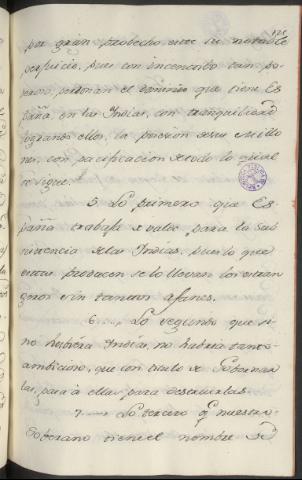 por gran probecho este su notable
perjuicio, pues con
perdonan el dominio que tiene Es
paña, en las Indias, con tranquilidad
logrando ellos, la posesion de sus millo
nes, con pacificacion de todo lo qual
se sigue.
5. Lo primero que Es
paña trabaja de valde, para la sub
sistencia de las Indias, pues lo que
estas producen se lo llevan los estran
geros sin tantos afanes.
6. Lo segundo que si
no hubiera Indias, no habria tanto
ambicioso, que con titulo de Gobernar
las, pasa à ellas para destruirlas.
7. Lo tercero q.e nuestro
Soberano tiene el nombre de